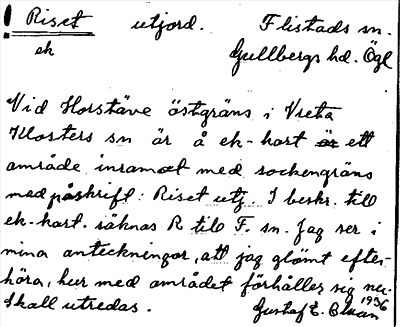 ! Riset utjord. Flistads sn.
ek Gullbergs hd. Ögl
Vid Horstäve östgräns i Vreta
Klosters sn är å ek-kart är ett
område inramat med sockengräns
med påskrift: Riset utj. I beskr. till
ek-kart. säknas R till F. sn. Jag ser i
mina anteckningar, att jag glömt efter-
höra, hur med området förhåller sig nu.
Skall utredas. 1936
Gustaf E.